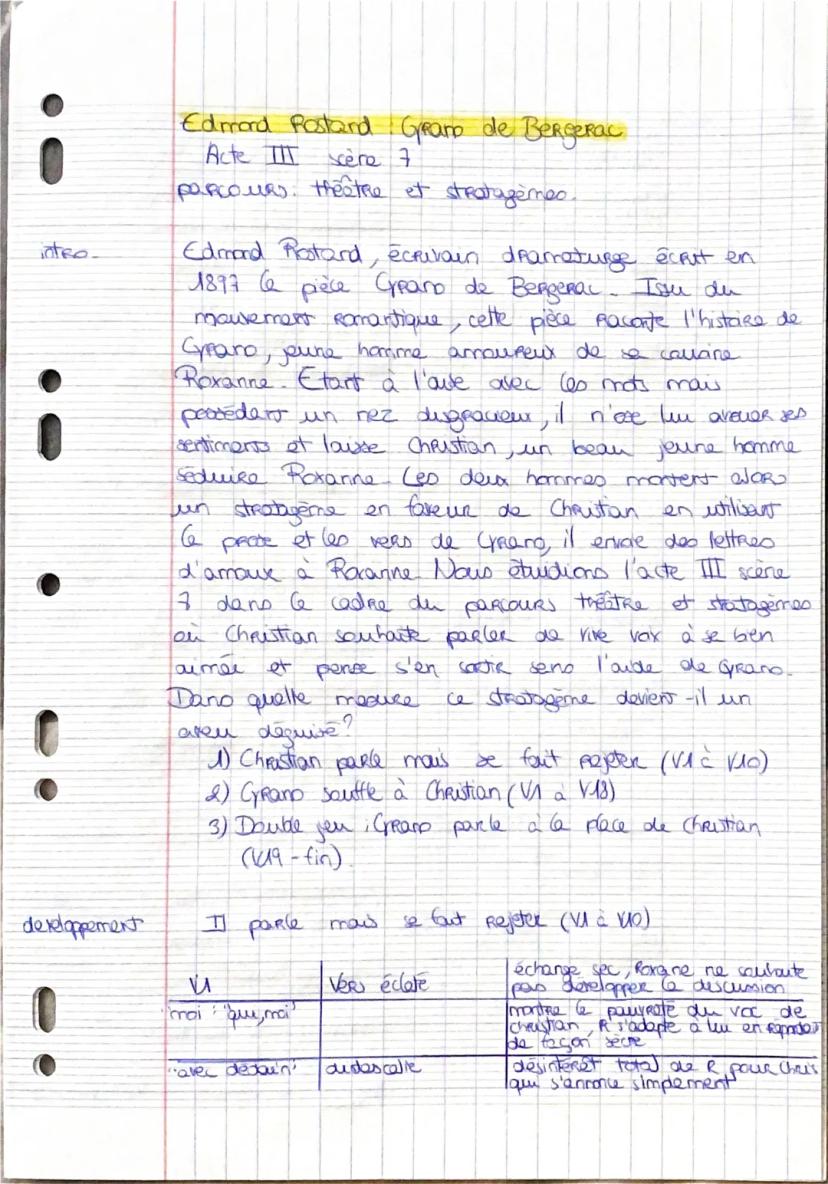 Edmond Rostand : Cyrano de Bergerac
Acte III scène 7
parcours : théâtre et stratagèmes.
intro - Edmond Rostand, écrivain dramaturge écrit en
1897 la pièce Cyrano de Bergerac. Issu du
mouvement romantique, cette pièce raconte l'histoire de
Cyrano, jeune homme amoureux de sa cousine
Roxanne. Etant à l'aise avec les mots mais
possédant un nez disgracieux, il n'ose lui avouer ses
sentiments et laisse Christian, un beau jeune homme
séduire Roxanne. Les deux hommes montent alors
un stratagème en faveur de Christian en utilisant
la prose et les vers de Cyrano, il envoie des lettres
d'amour à Roxanne. Nous étudions l'acte III scène
7 dans le cadre du parcours théâtre et statagèmes
où Christian souhaite parler de vive voix à sa bien
aimée et pense s'en sortir sens l'aide de Cyrano.
Dans quelle mesure ce stratagème devient-il un
aveu déguisé?
1) Christian parle mais se fait rejeter (V1 à V10)
2) Cyrano souffle à Christian (V1 à V18)
3) Double jeu : Cyrano parle à la place de Christian
(V19 - fin).
developpement I) parle mais se fait rejeter (V1 à V10)
V1 Vers éclaté échange sec, Roxane ne souhaite
pas développer la discussion
moi : "qui, moi" montre la pauvreté du voc de
christian, R s'adapte à lui en
de façon sèche
"avec dédain" didascalie désintérêt total de R pour Chris
qui s'annonce simplement